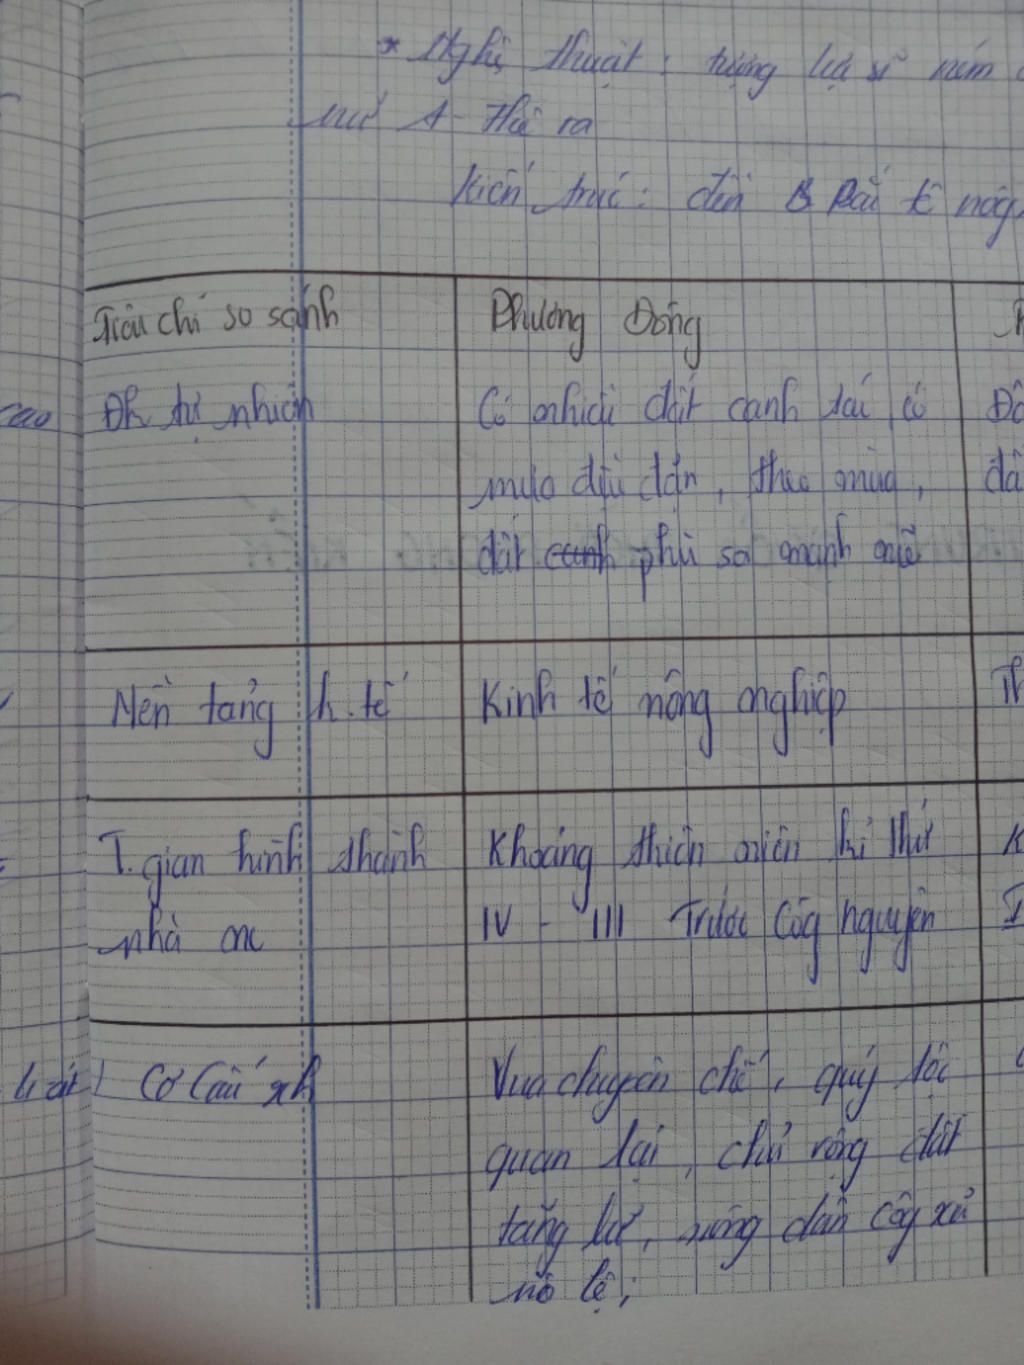 * Nghệ thuật: tượng lực sĩ ném
nữ A-thê-na
Kiến trúc: đền Pác tê nông
Tiêu chí so sánh
Phương Đông
Đk tự nhiên
Có nhiều đất canh tác, có
mưa đều đặn, theo mùa,
đất canh phù sa mành mẽ
Nền tảng k.tế
Kinh tế nông nghiệp
Th
T.gian hình thành
nhà nc
Khoảng thiên niên kỉ thứ
IV - III Trước Côg nguyên
cao
Cơ Cấu xh
Vua chuyên chế, quý tộc
quan lại, chủ rộng đất
tăng lữ, nông dân côg xã
nô lệ;